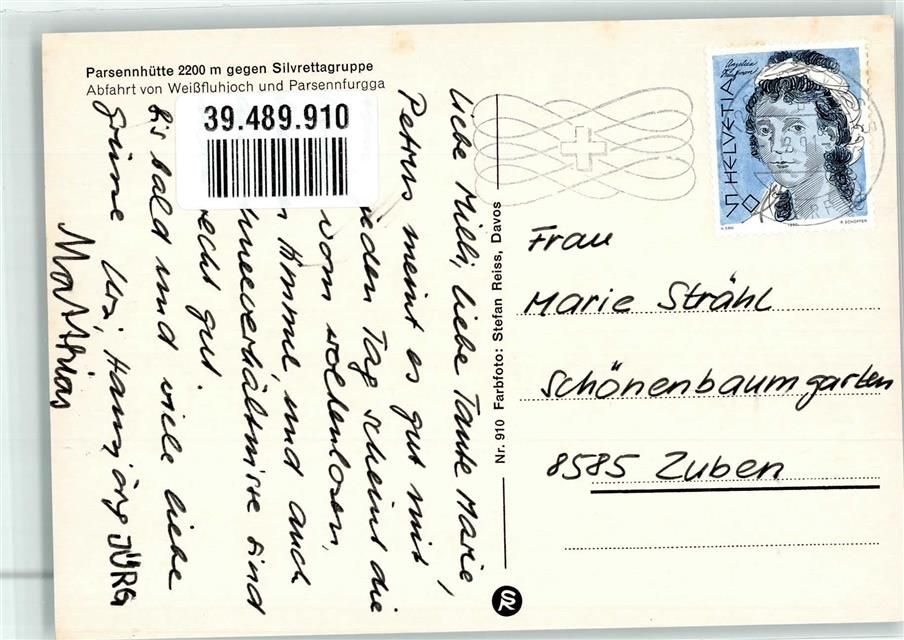 Parsennhütte 2200 m gegen Silvrettagruppe
Abfahrt von Weißfluhjoch und Parsennfurgga
39.489.910
Liebe Mili, liebe Tante Marie,
Petrus meint es gut mit
jeden Tag scheint die
vom wolkenlosen,
Himmel und auch
hneeverhältnisse sind
recht gut.
Bis bald und viele liebe
Grüsse Ursi, Hansjörg JÜRG
Matthias
Nr. 910 Farbfoto: Stefan Reiss, Davos
HELVETIA
50
Angelica
Kauffmann
1990
Frau
Marie Strähl
Schönenbaumgarten
8585 Zuben
SR